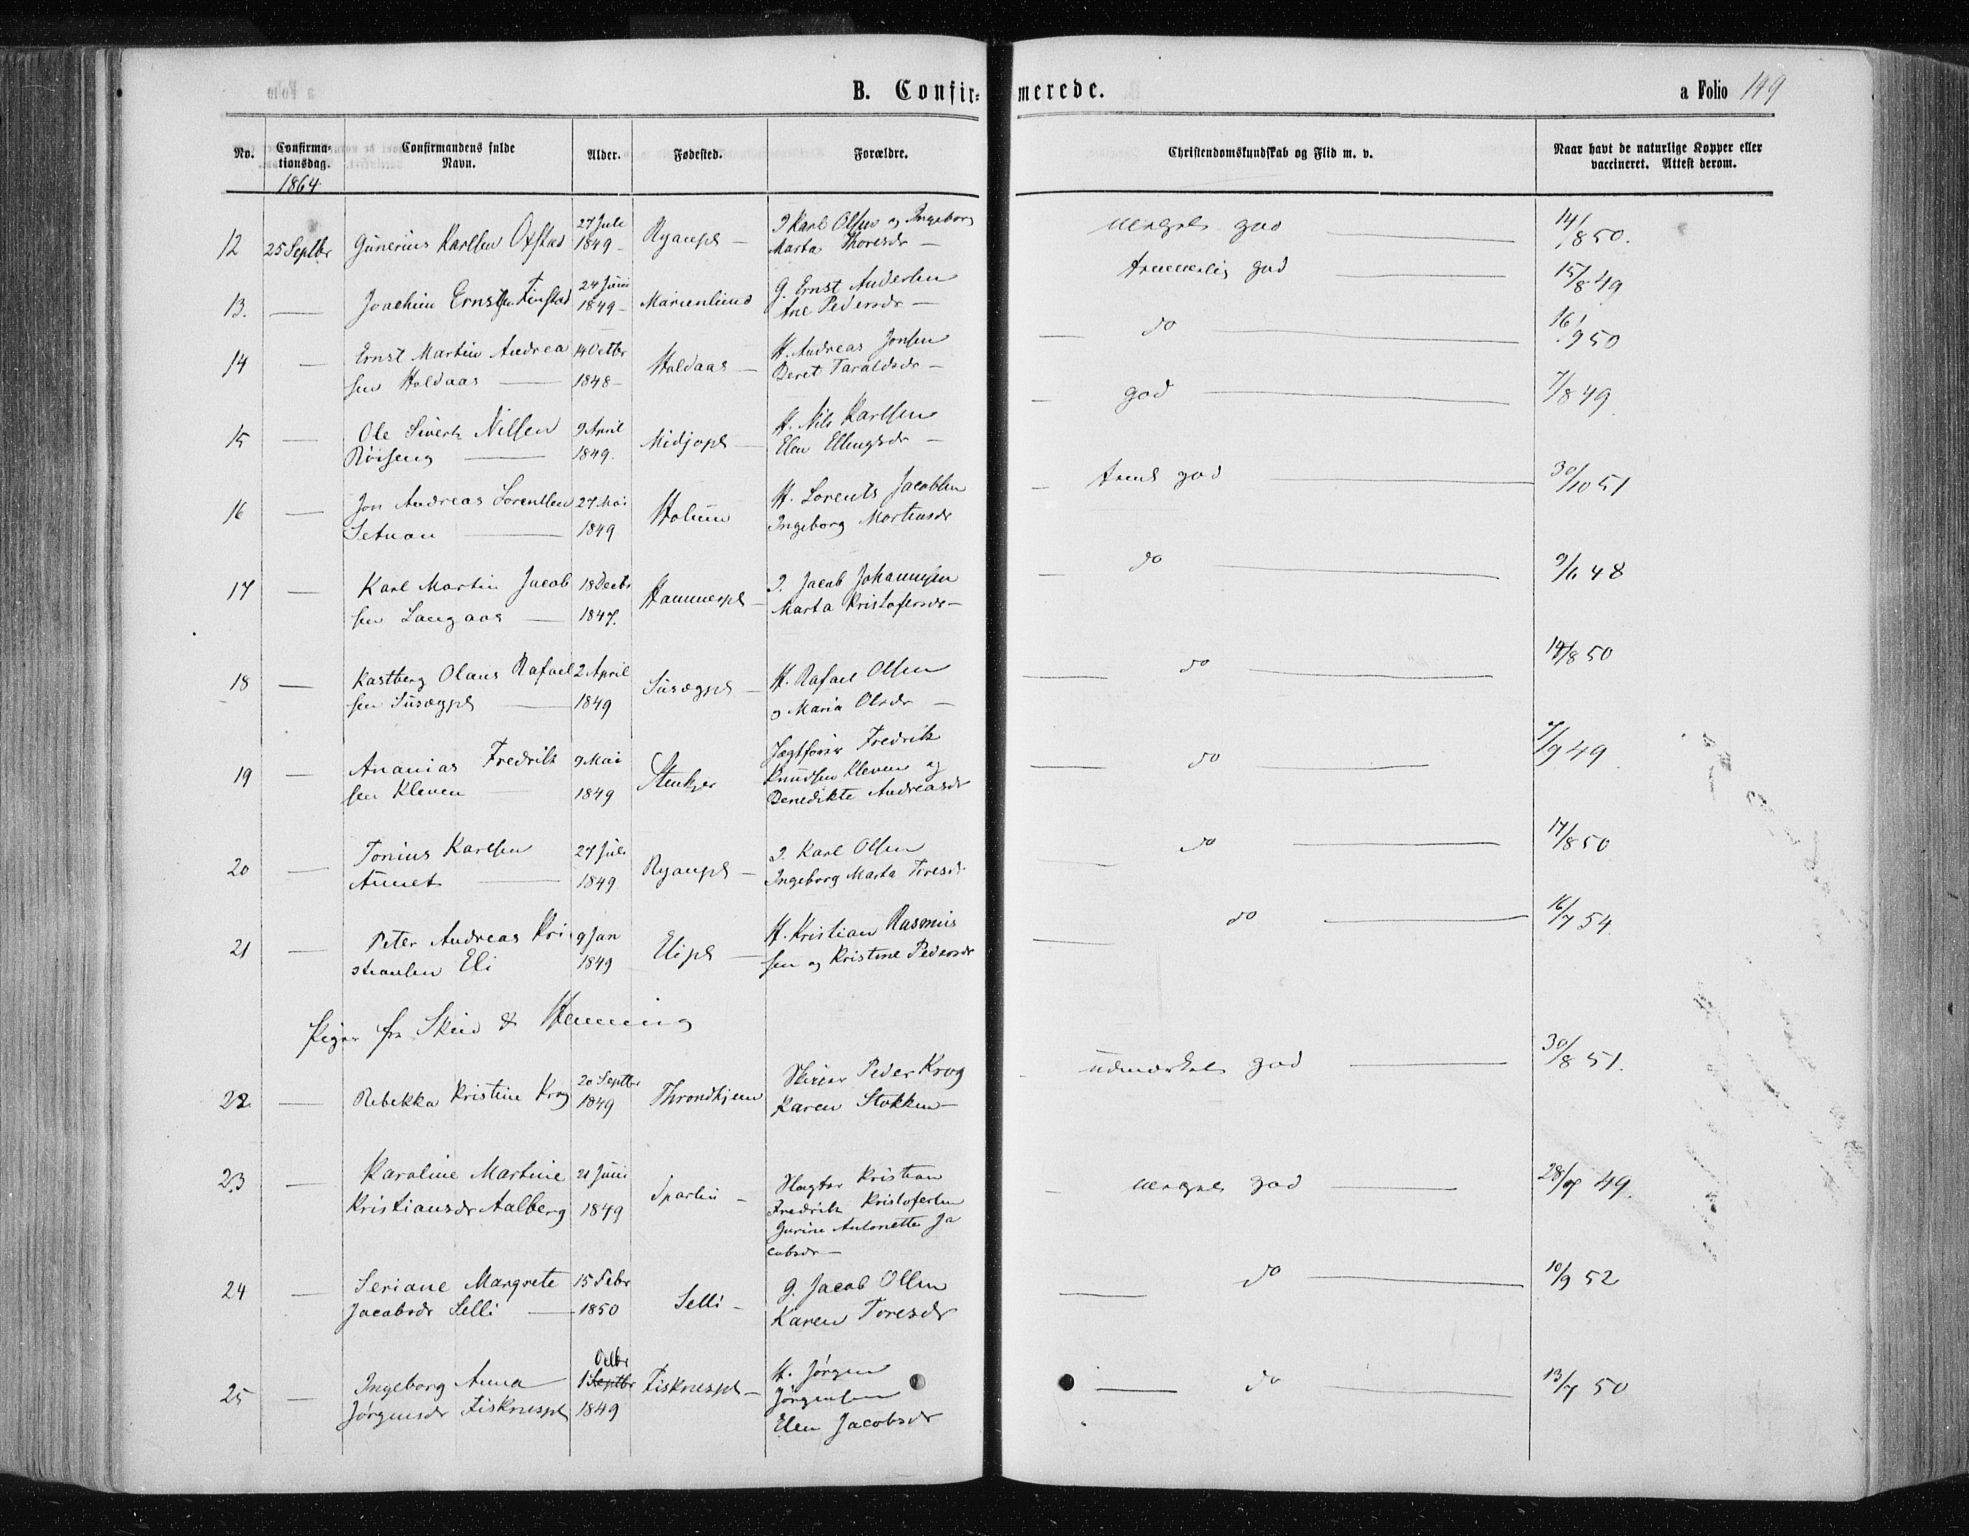 B. Confirmerede.
a Folio 149
No.
Confirmationsdag.
Confirmandens fulde Navn.
Alder.
Fødested.
Forældre.
Christendomskundskab og Flid m. v.
Naar havt de naturlige Kopper eller vaccineret. Attest derom.
1864
12 25 Septbr Gunerius Karlsen Oxstad 27 Juli 1849 - Ryanspl - I Karl Olsen og Ingeborg Marta Thoresdr - god 14/8 50.
13. — Joachim Ernstsen Finstad 24 Juni 1849 - Marienlund G. Ernst Andersen Ane Pedersdr - god 15/8 49
14 — Ernst Martin Andreasen Holdaas — 14 Octbr 1848 - Holdaas - H. Andreas Jonsen Beret Taraldsdr - do 16/9 50
15 — Ole Sivert Nilsen Röiseng — 9 April 1849. Midjopl - H. Nils Karlsen Elen Ellingsdr - god 7/8 49.
16 — Jon Andreas Lorentsen Setnan — 27 Mai 1849 Holum H. Lorents Jacobsen Ingeborg Martensdr god 30/10 51
17 — Karl Martin Jacobsen Langaas — 18 Decbr 1847. Hammerpl - I. Jacob Johannesen Marta Kristofersdr - do 9/1 48
18 — Kastberg Olaus Rafaelsen Susægpl — 2 April 1849 Susægpl - H. Rafael Olsen og Maria Olsdr - do 19/8 50
19 — Ananias Fredriksen Kleven — 9 Mai 1849 Stenkjer Jægtfører Fredrik Knudsen Kleven og Benedikte Andreasdr do 7/9 49
20 — Tonius Karlsen Aunet — 27 Juli 1849 Ryanspl - I. Karl Olsen Ingeborg Marta Toresdr do 14/8 50
21 — Peter Andreas Kristiansen Eli 9 Jan 1849 Elipl - H. Kristian Rasmussen og Kristine Pedersdr do 16/7 54.
Piger fra Skeid & Henning
22 — Rebekka Kristine Krog 20 Septbr 1849 Throndhjem Peder Krog Karen Stokken - udmærket god 30/8 51.
23 — Karoline Martine Kristiansdr Aalberg 21 Juni 1849 Sparbu - Kristian Fredrik Kristofersen Gurine Antonette Jacobsdr - god 28/8 49.
24 — Seriane Margrete Jacobsdr Selli — 15 Febr 1850 Selli - G. Jacob Olsen Karen Toresdr do 10/9 52
25 — Ingeborg Anna Jørgensdr Fisknespl 1 Septbr Octbr 1849 Fisknespl - H. Jørgen Jørgensen Elen Jacobsdr do 13/7 50